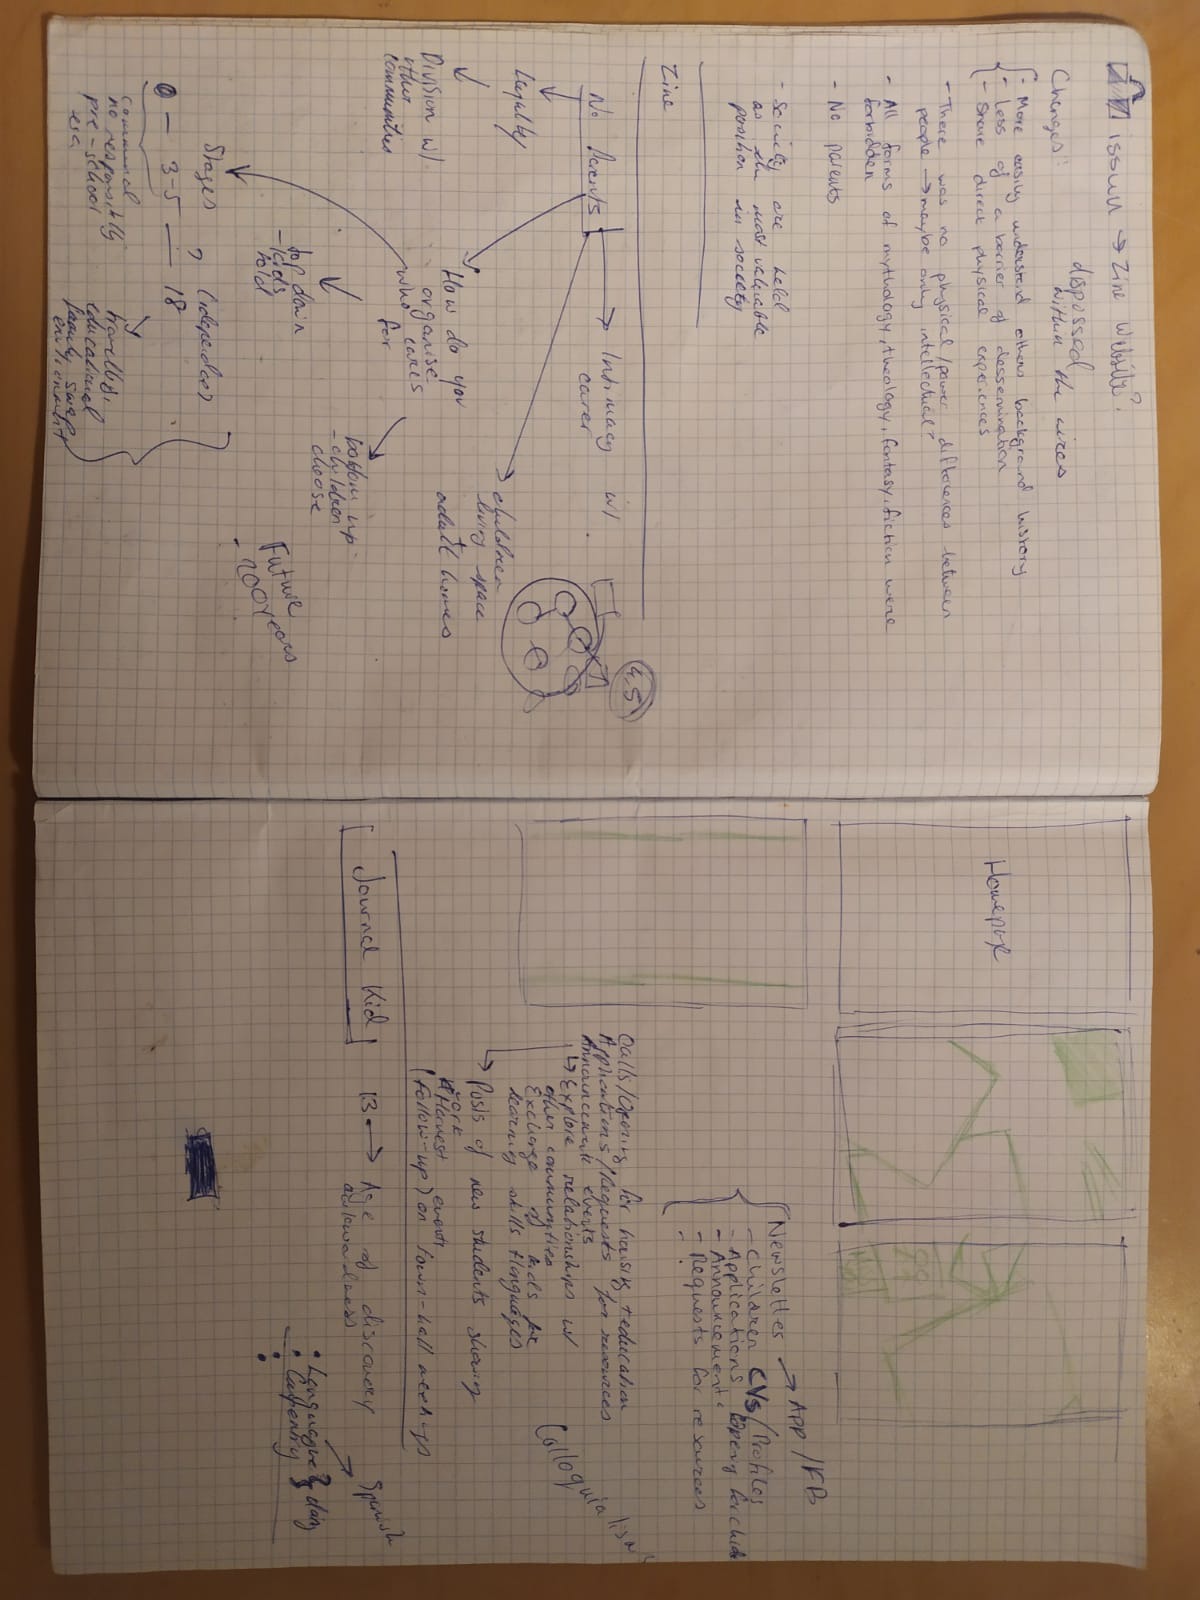 issuu → Zine Website?
dispossed
within the wires
Changes:
- More easily understand others background history
- Less of a barrier of dessemination
- Share direct physical experiences
- There was no physical/power differences between
people → maybe only intellectual?
- All forms of mythology, theology, fantasy, fiction were
forbidden
- No parents
- Society are held
as the most valuable
position in society
Zine
No Parents
Intimacy w/
carer
4,5
Loyalty
Division w/
other
communities
How do you
organise
who cares
for
children
living space
+
adult homes
bottom up
- children
choose
top down
- kids
told
Future
- 200 years
Stages
?
0 — 3-5 — 18
communal
no responsibility
pre-school
travelling,
educational
family swap
environment
Homepage
Newsletter → App/FB
- Children CVs/Profiles
- Applications
- Announcements
- Requests for resources
-
Calls/Opening for housing + education
Applications/Requests for resources
Announcements events
↳ Explore relationships w/
other communities
Exchange of kids for
learning skills + languages
→ Posts of new students showing
work
Harvest events
(follow-up) on town-hall meetings
Journal Kid
13 → Age of discovery
awkwardness
Spanish
• Language
• Carpentry
•
•